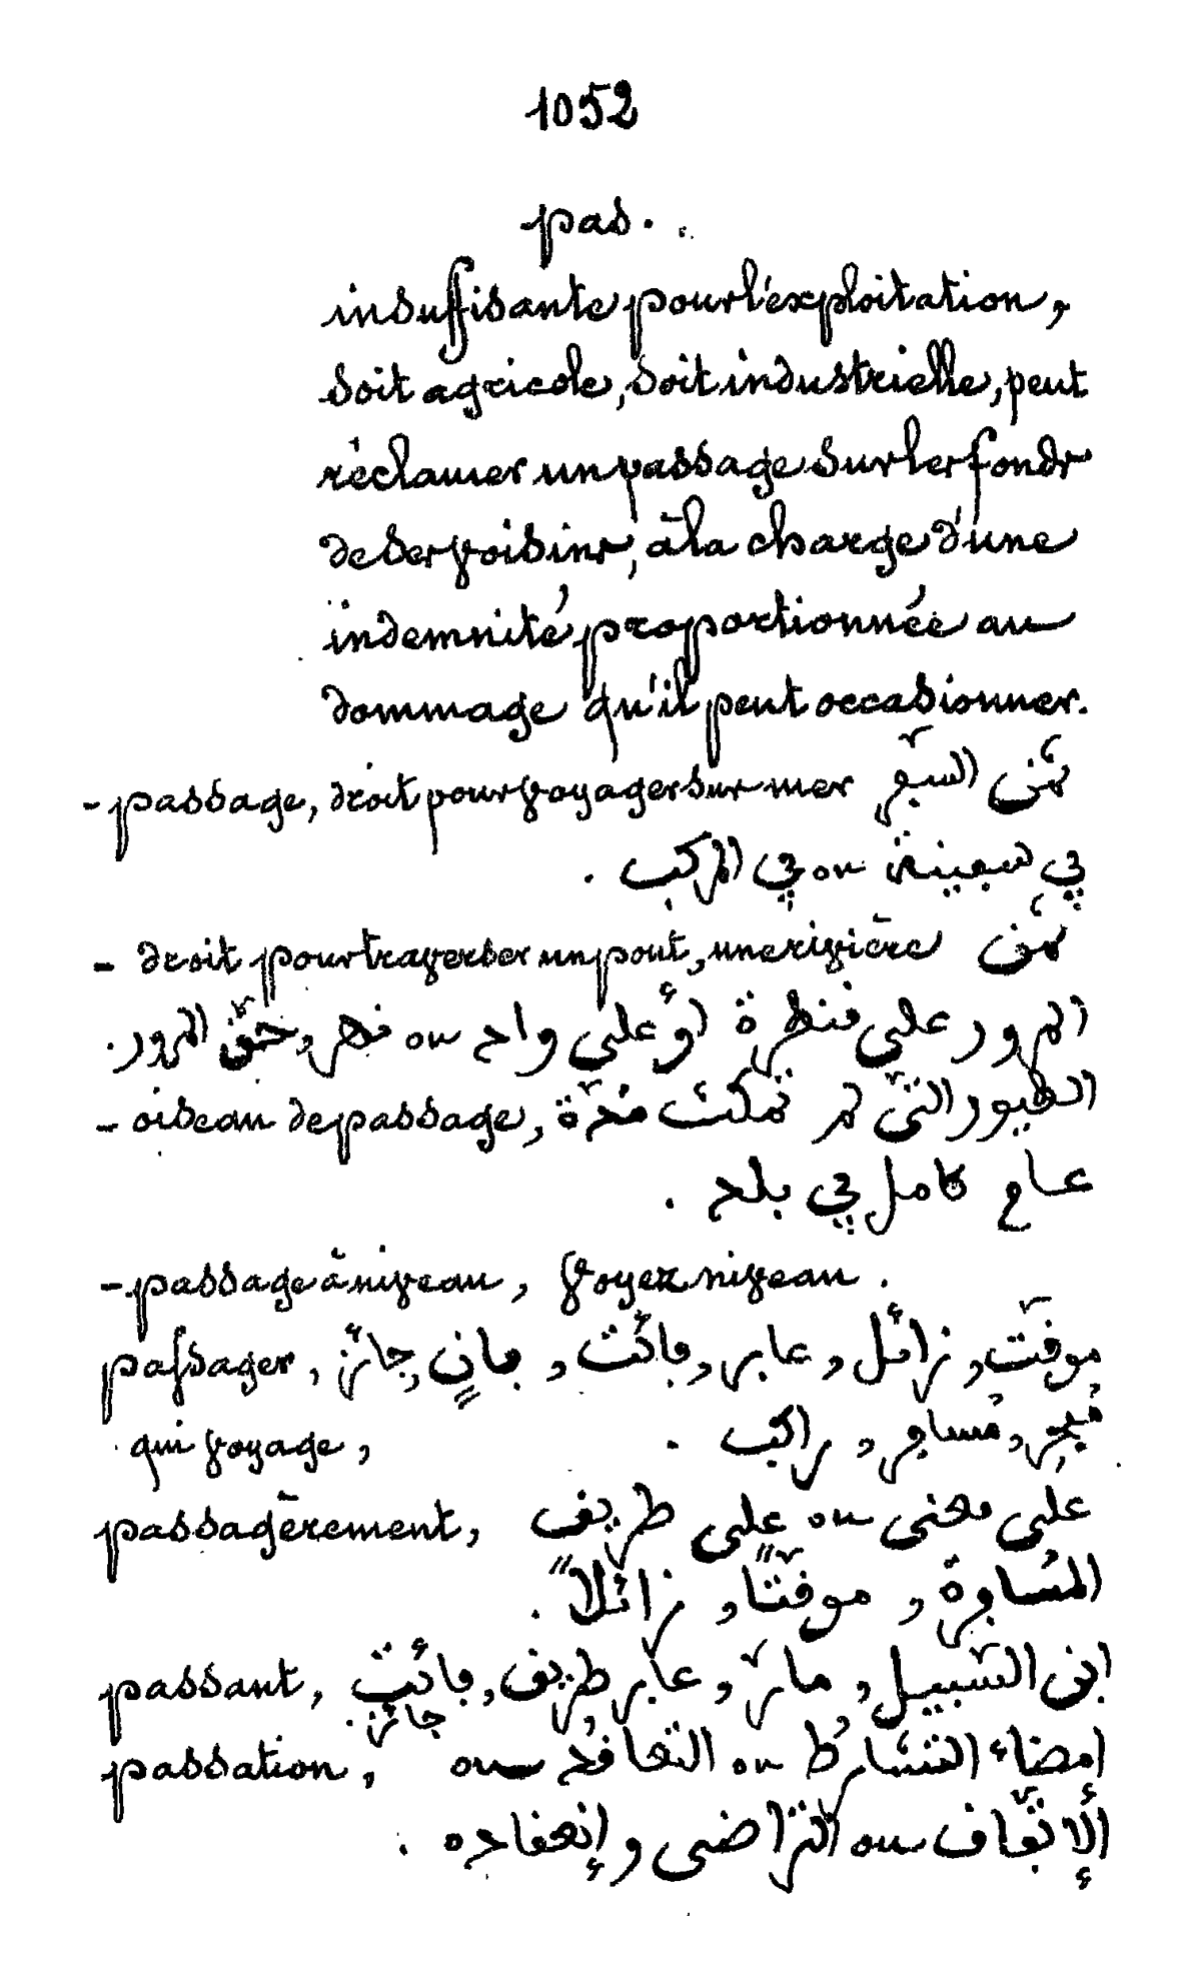 1052
pas.
insuffisante pour l'exploitation,
soit agricole, soit industrielle, peut
réclamer un passage sur les fonds
de ses voisins, à la charge d'une
indemnité proportionnée au
dommage qu'il peut occasionner.
- passage, droit pour voyager sur mer ثمن السبر
في سفينة ou في المركب .
- droit pour traverser un pont, une rivière ثمن
المرور على قنطرة أو على واد ou نهر, حقّ المرور.
- oiseau de passage, الطيور التّى لم تمكث مُدّة
عام كامل في بلد .
- passage à niveau, voyez niveau .
passager, موقّت, زائل, عابر, فائت, فانٍ, جائز
qui voyage, مُبحِر, مُسافر, راكب .
passagèrement, على معنى ou على طريق
المُسافرة, موقّتًا, زائلاً .
passant, ابن السّبيل, مارّ, عابر طريق, فائت
جائز .
passation, إمضاء التشارُط ou التعاقُد ou
الإتّفاق ou التّراضى وإنعقاده .